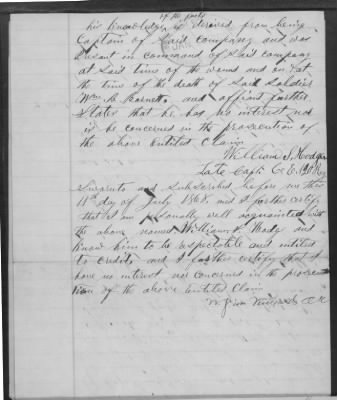 of the facts
his knowledge is derived from being
Captain of Said company and was
present in command of Said company
at Said time of the wound and at
the time of the death of Said Soldier
Wm H Barnett. and affiant further
States that he has no interest nor
is he concerned in the prosecution of
the above Entitled Claim
William S. Hodge
Late Capt. C. E.
Sworn to and Subscribed before me this
11th day of July 1868. and I further certify
that I am personally well acquainted with
the above named William S. Hodge and
know him to be respectable and entitled
to credit, and I further certify that I
have no interest nor concerned in the prosecu
tion of the above Entitled Claim